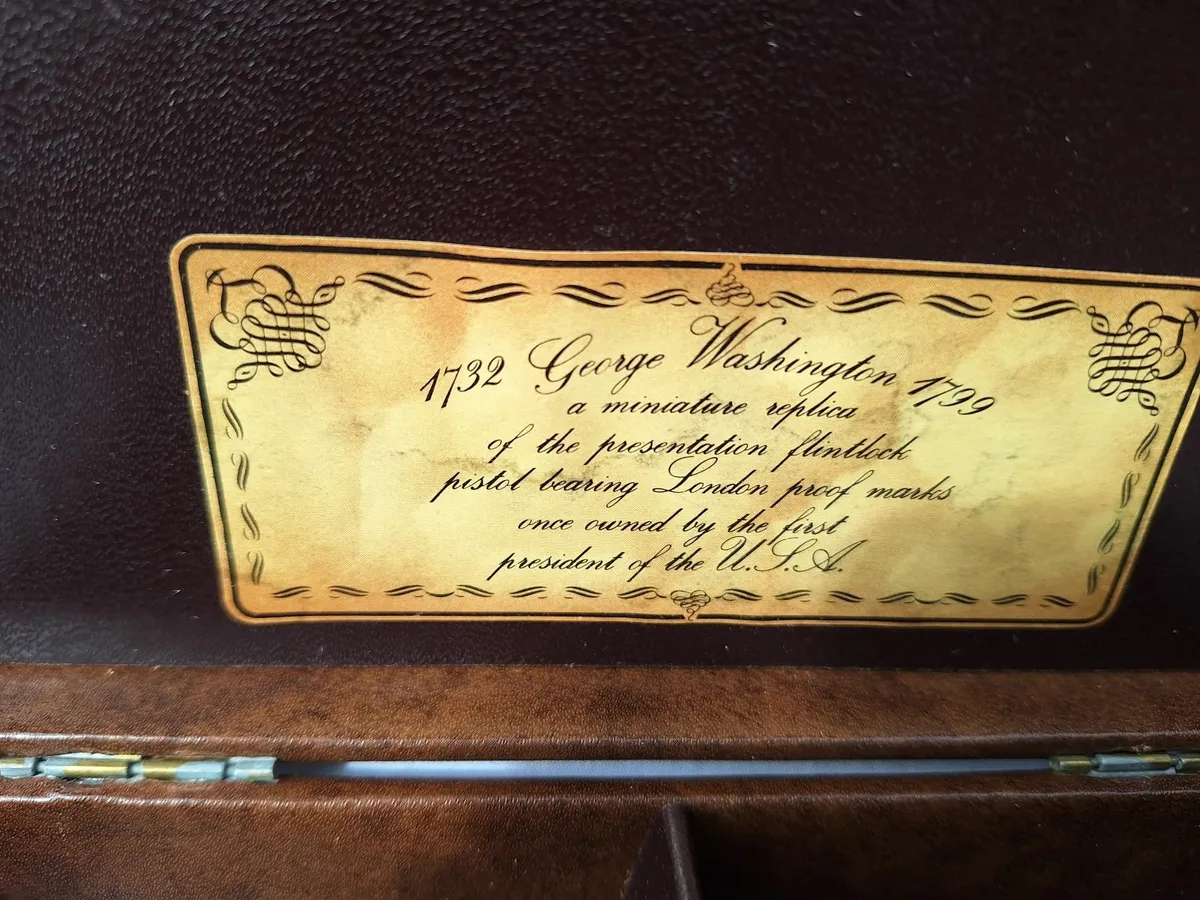 1732 George Washington 1799
a miniature replica
of the presentation flintlock
pistol bearing London proof marks
once owned by the first
president of the U.S.A.